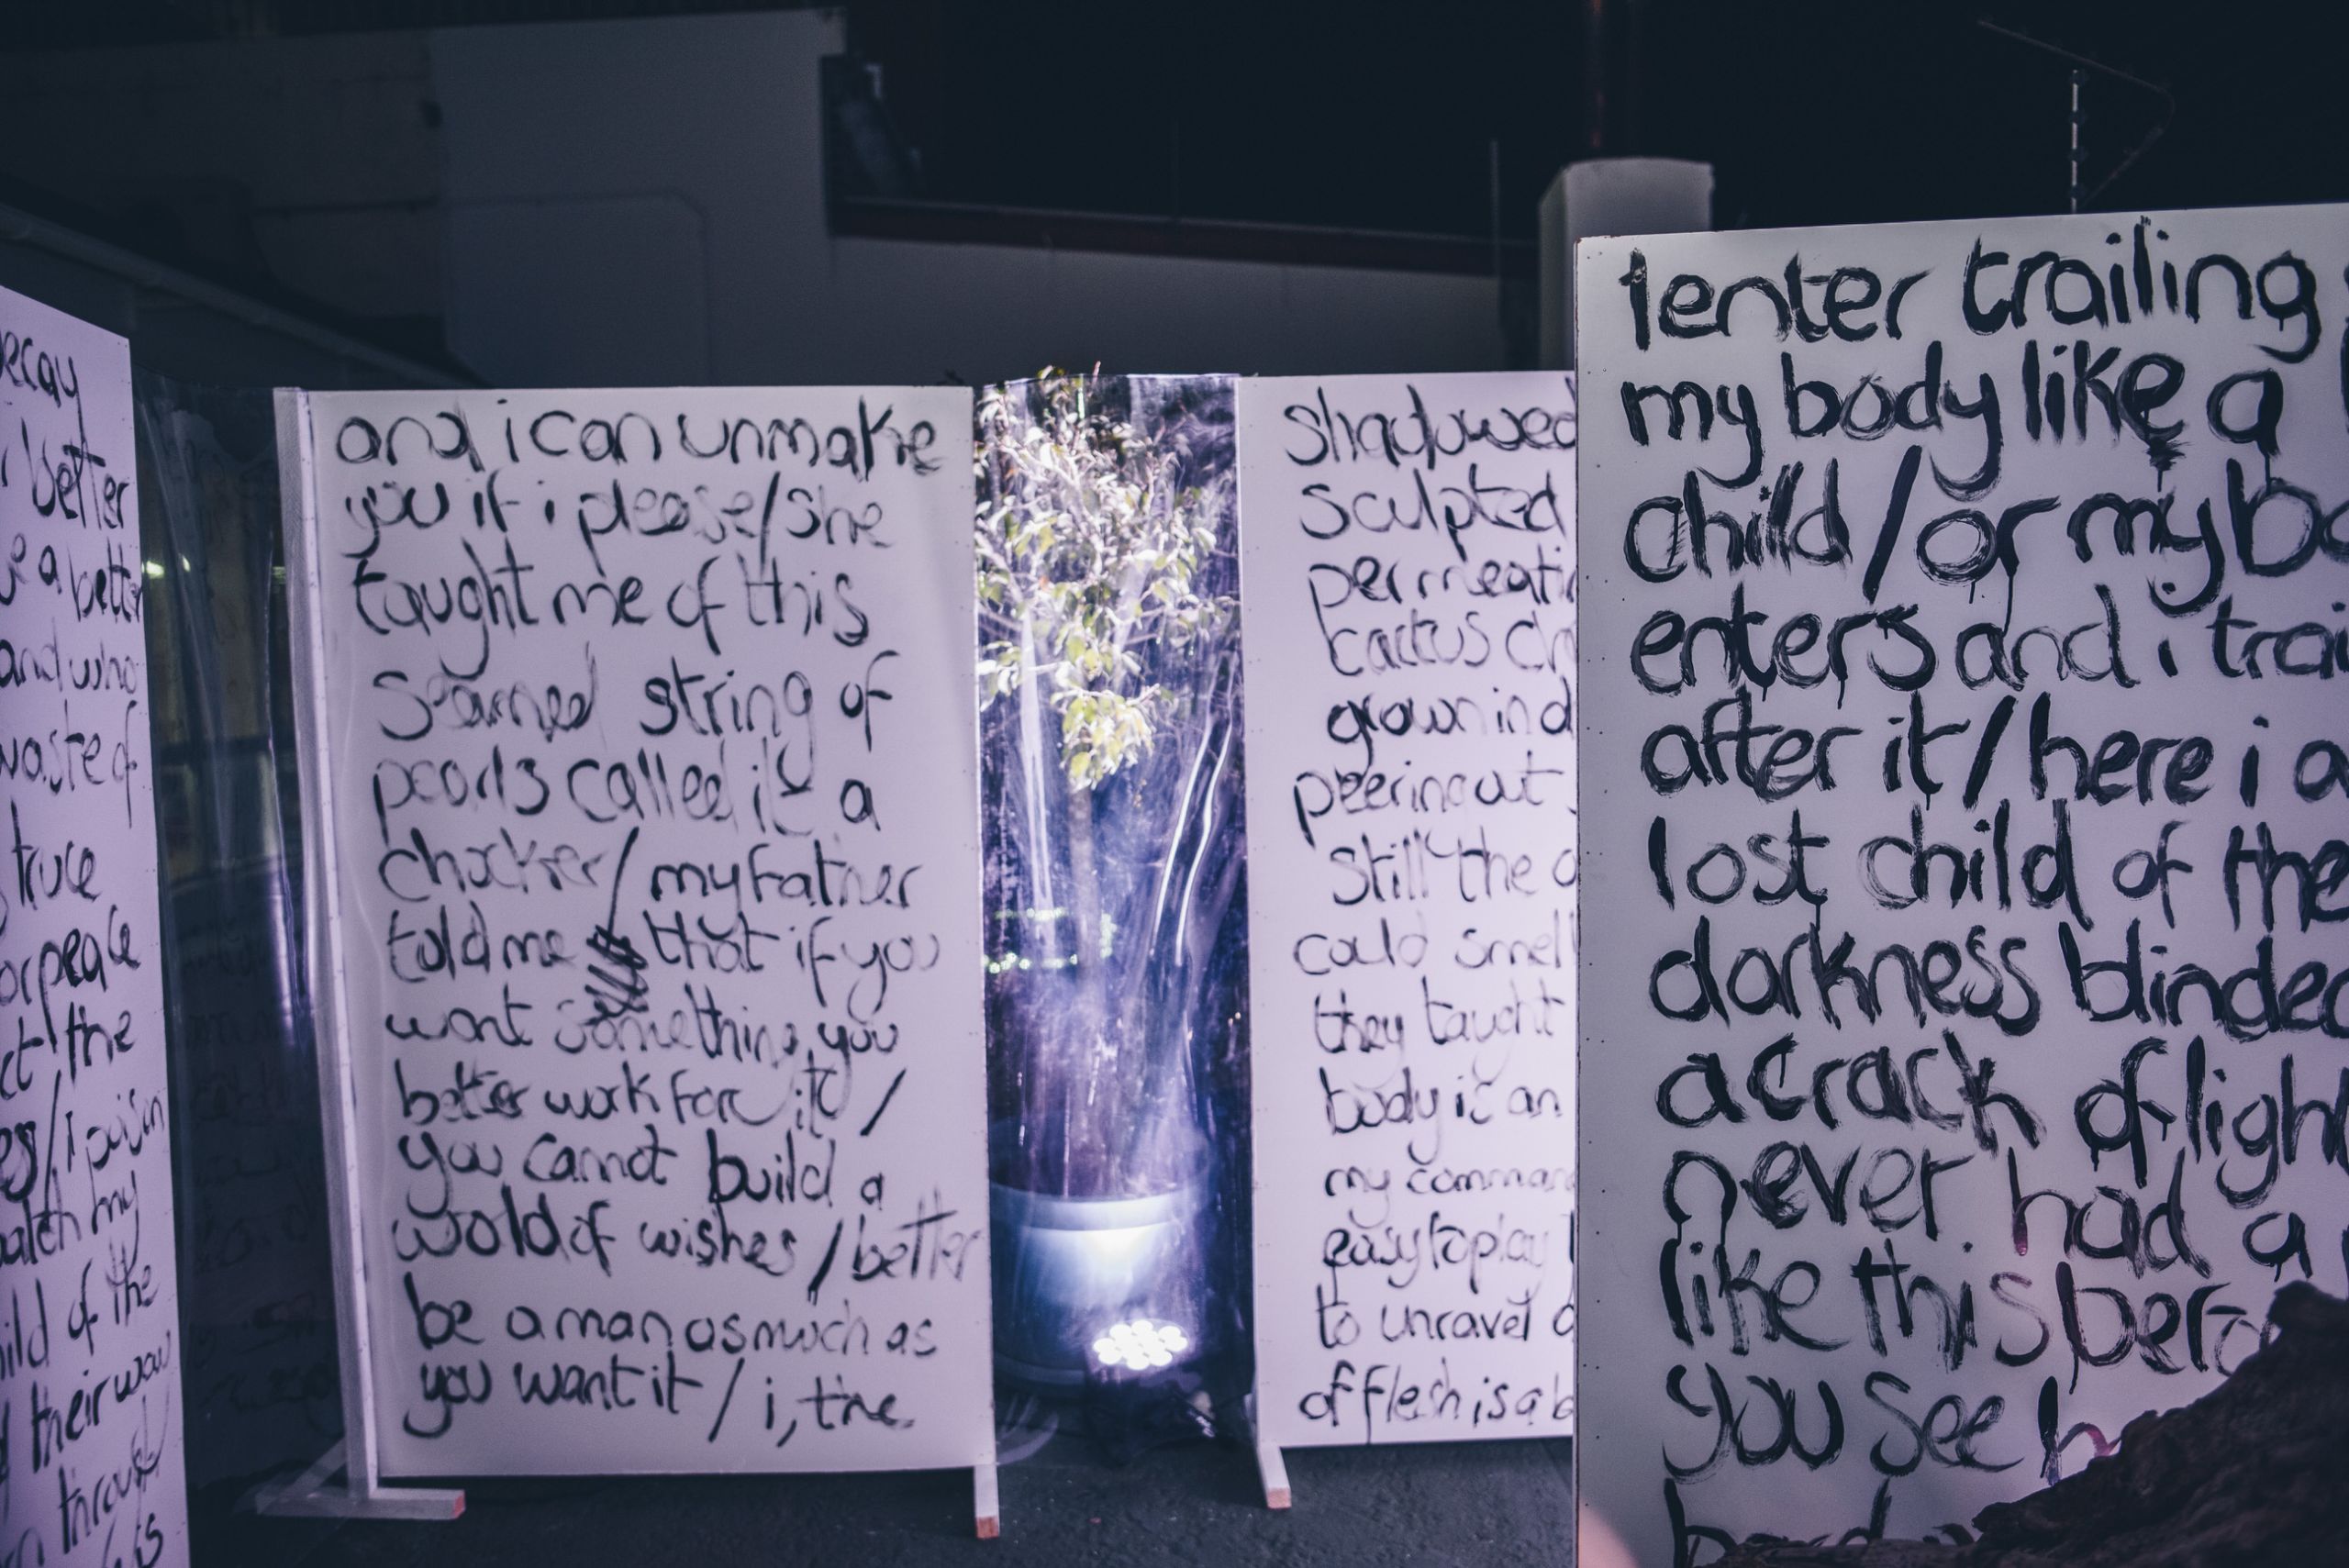 ecay
better
e a better
and who
waste of
truce
or peace
ct the
es/i poison
my
ild of the
their way
through
is
and i can unmake
you if i please/she
taught me of this
seamed string of
pearls called it a
chocker/my father
told me that if you
want something you
better work for it/
you cannot build a
wold of wishes/better
be a man as much as
you want it/i, the
shadowed
sculpted
permeatin
cactus
grown in d
peering out
still the
could smell
they taught
body is an
my command
easy to play
to unravel
of flesh is a b
I enter trailing
my body like a
child/or my bo
enters and i trai
after it/here i a
lost child of the
darkness blinded
a crack of ligh
never had a
like this befo
you see h